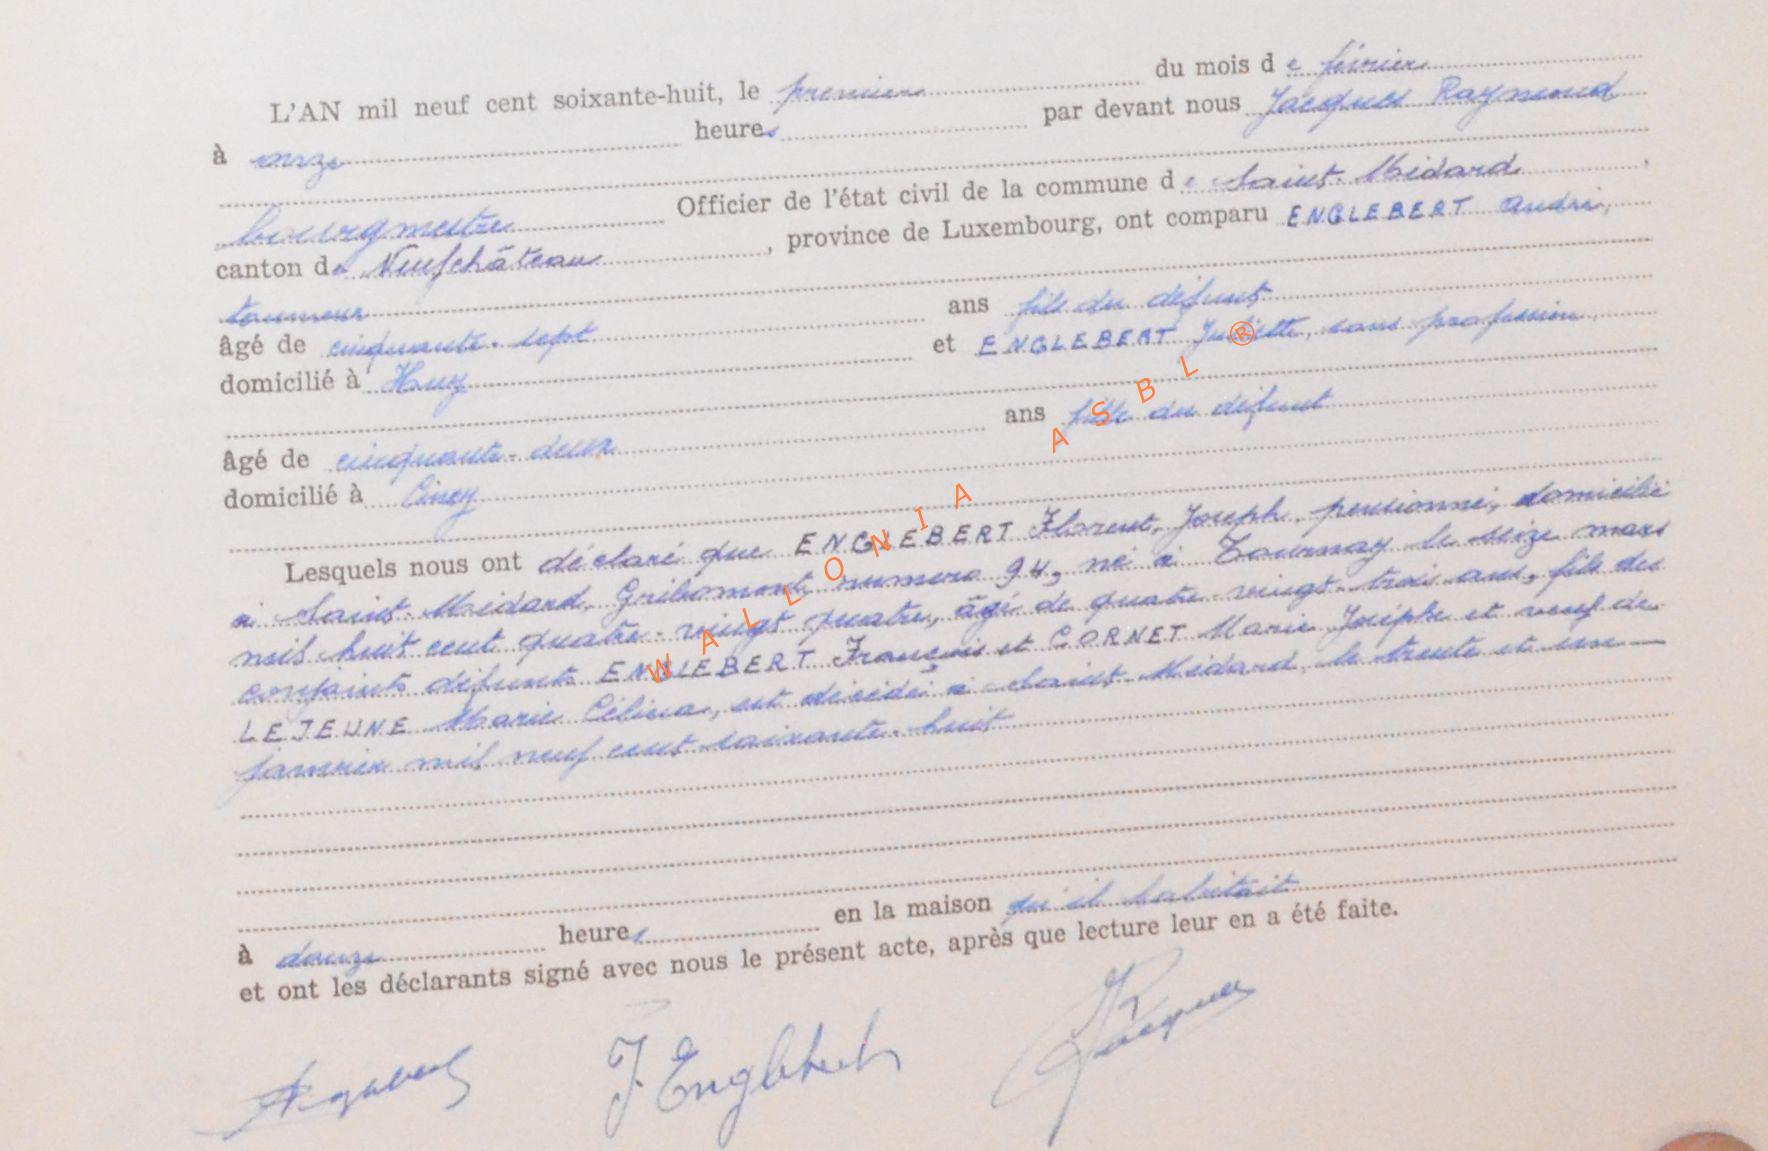 L'AN mil neuf cent soixante-huit, le premier du mois de février
à onze heures par devant nous Jacques Raymond
bourgmestre Officier de l'état civil de la commune de Saint-Médard,
canton de Neufchâteau, province de Luxembourg, ont comparu ENGLEBERT André,
tourneur
âgé de cinquante-sept ans fils du défunt
domicilié à Huy et ENGLEBERT Juliette, sans profession,
âgé de cinquante-deux ans fille du défunt
domicilié à Ciney
Lesquels nous ont déclaré que ENGLEBERT Florent, Joseph, pensionné, domicilié
à Saint-Médard, Gribomont, numéro 94, né à Tournay le seize mars
mil huit cent quatre-vingt quatre, âgé de quatre-vingt-trois ans, fils des
conjoints défunts ENGLEBERT François et CORNET Marie Josèphe et veuf de
LEJEUNE Marie Célina, est décédé à Saint-Médard, le trente et un
janvier mil neuf cent soixante-huit
à douze heures en la maison qu'il habitait
et ont les déclarants signé avec nous le présent acte, après que lecture leur en a été faite.
J. Englebert
Jacques
WALLONIA ASBL ®